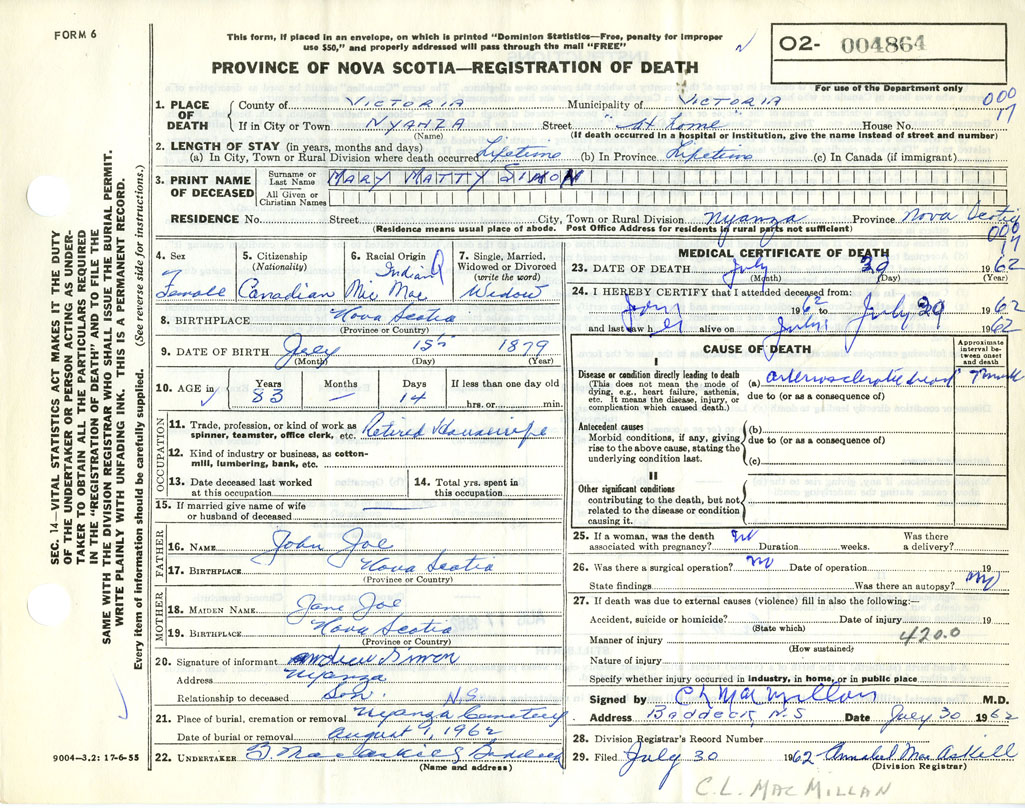 FORM 6
This form, if placed in an envelope, on which is printed "Dominion Statistics—Free, penalty for improper
use $50," and properly addressed will pass through the mail "FREE"
PROVINCE OF NOVA SCOTIA—REGISTRATION OF DEATH
O2- 004864
For use of the Department only
000
17
1. PLACE OF DEATH
County of VICTORIA Municipality of VICTORIA
If in City or Town NYANZA Street "At Home" House No.
(Name) (If death occurred in a hospital or institution, give the name instead of street and number)
2. LENGTH OF STAY (in years, months and days)
(a) In City, Town or Rural Division where death occurred Lifetime (b) In Province Lifetime (c) In Canada (if immigrant)
3. PRINT NAME OF DECEASED
Surname or Last Name MARY MATTY SIMON
All Given or Christian Names
RESIDENCE No. Street City, Town or Rural Division Nyanza Province Nova Scotia
(Residence means usual place of abode. Post Office Address for residents in rural parts not sufficient)
000
17
4. Sex Female
5. Citizenship (Nationality) Canadian
6. Racial Origin Indian Mic Mac
7. Single, Married, Widowed or Divorced (write the word) Widow
8. BIRTHPLACE Nova Scotia
(Province or Country)
9. DATE OF BIRTH July 15th 1879
(Month) (Day) (Year)
10. AGE in Years 83 Months — Days 14 If less than one day old
hrs. or min.
OCCUPATION
11. Trade, profession, or kind of work as
spinner, teamster, office clerk, etc. Retired Housewife
12. Kind of industry or business, as cotton-
mill, lumbering, bank, etc.
13. Date deceased last worked
at this occupation
14. Total yrs. spent in
this occupation
15. If married give name of wife
or husband of deceased
FATHER
16. NAME John Joe
17. BIRTHPLACE Nova Scotia
(Province or Country)
MOTHER
18. MAIDEN NAME Jane Joe
19. BIRTHPLACE Nova Scotia
(Province or Country)
20. Signature of informant Andrew Simon
Address Nyanza
Relationship to deceased Son. N.S.
21. Place of burial, cremation or removal Nyanza Cemetery
Date of burial or removal August 1, 1962
22. UNDERTAKER Baddeck
(Name and address)
MEDICAL CERTIFICATE OF DEATH
23. DATE OF DEATH July 29 1962
(Month) (Day) (Year)
24. I HEREBY CERTIFY that I attended deceased from:
1962 to July 29 1962
and last saw her alive on July 1962
CAUSE OF DEATH
Approximate interval between onset and death
Disease or condition directly leading to death
(This does not mean the mode of
dying, e.g., heart failure, asthenia,
etc. It means the disease, injury, or
complication which caused death.)
(a) arteriosclerotic
due to (or as a consequence of)
Antecedent causes
Morbid conditions, if any, giving
rise to the above cause, stating the
underlying condition last.
(b)
due to (or as a consequence of)
(c)
II
Other significant conditions
contributing to the death, but not
related to the disease or condition
causing it.
25. If a woman, was the death
associated with pregnancy? no Duration weeks. Was there a delivery?
26. Was there a surgical operation? no Date of operation 19
State findings Was there an autopsy? no
27. If death was due to external causes (violence) fill in also the following:—
Accident, suicide or homicide? Date of injury 19
(State which)
Manner of injury 420.0
(How sustained)
Nature of injury
Specify whether injury occurred in industry, in home, or in public place
Signed by C L MacMillan M.D.
Address Baddeck, N.S Date July 30 1962
28. Division Registrar's Record Number
29. Filed July 30 1962 Annabel MacAskill
(Division Registrar)
C.L. MACMILLAN
SEC. 14—VITAL STATISTICS ACT MAKES IT THE DUTY
OF THE UNDERTAKER OR PERSON ACTING AS UNDER-
TAKER TO OBTAIN ALL THE PARTICULARS REQUIRED
IN THE "REGISTRATION OF DEATH" AND TO FILE THE
SAME WITH THE DIVISION REGISTRAR WHO SHALL ISSUE THE BURIAL PERMIT.
WRITE PLAINLY WITH UNFADING INK. THIS IS A PERMANENT RECORD.
Every item of information should be carefully supplied. (See reverse side for instructions.)
9004—3.2: 17-6-55